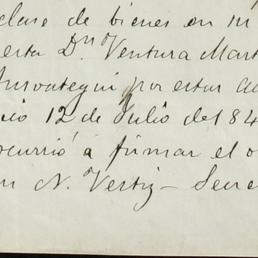 clase de bienes en m
erta Dn Ventura Mart
por estar
cio 12 de Julio del 84
ocurrió á firmar el o
N. Vertiz - Secre